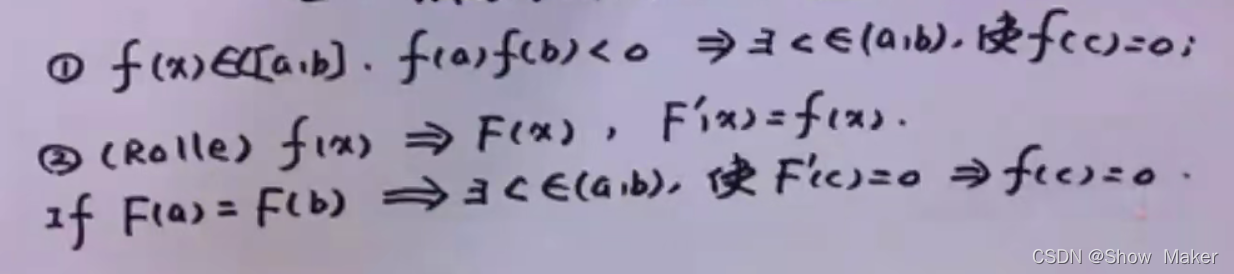 ① f(x)∈C[a,b]. f(a)f(b)<0 ⇒∃c∈(a,b), 使f(c)=0;
② (Rolle) f(x) ⇒ F(x), F'(x)=f(x).
If F(a)=F(b) ⇒∃c∈(a,b), 使F'(c)=0 ⇒f(c)=0.
CSDN @Show Maker